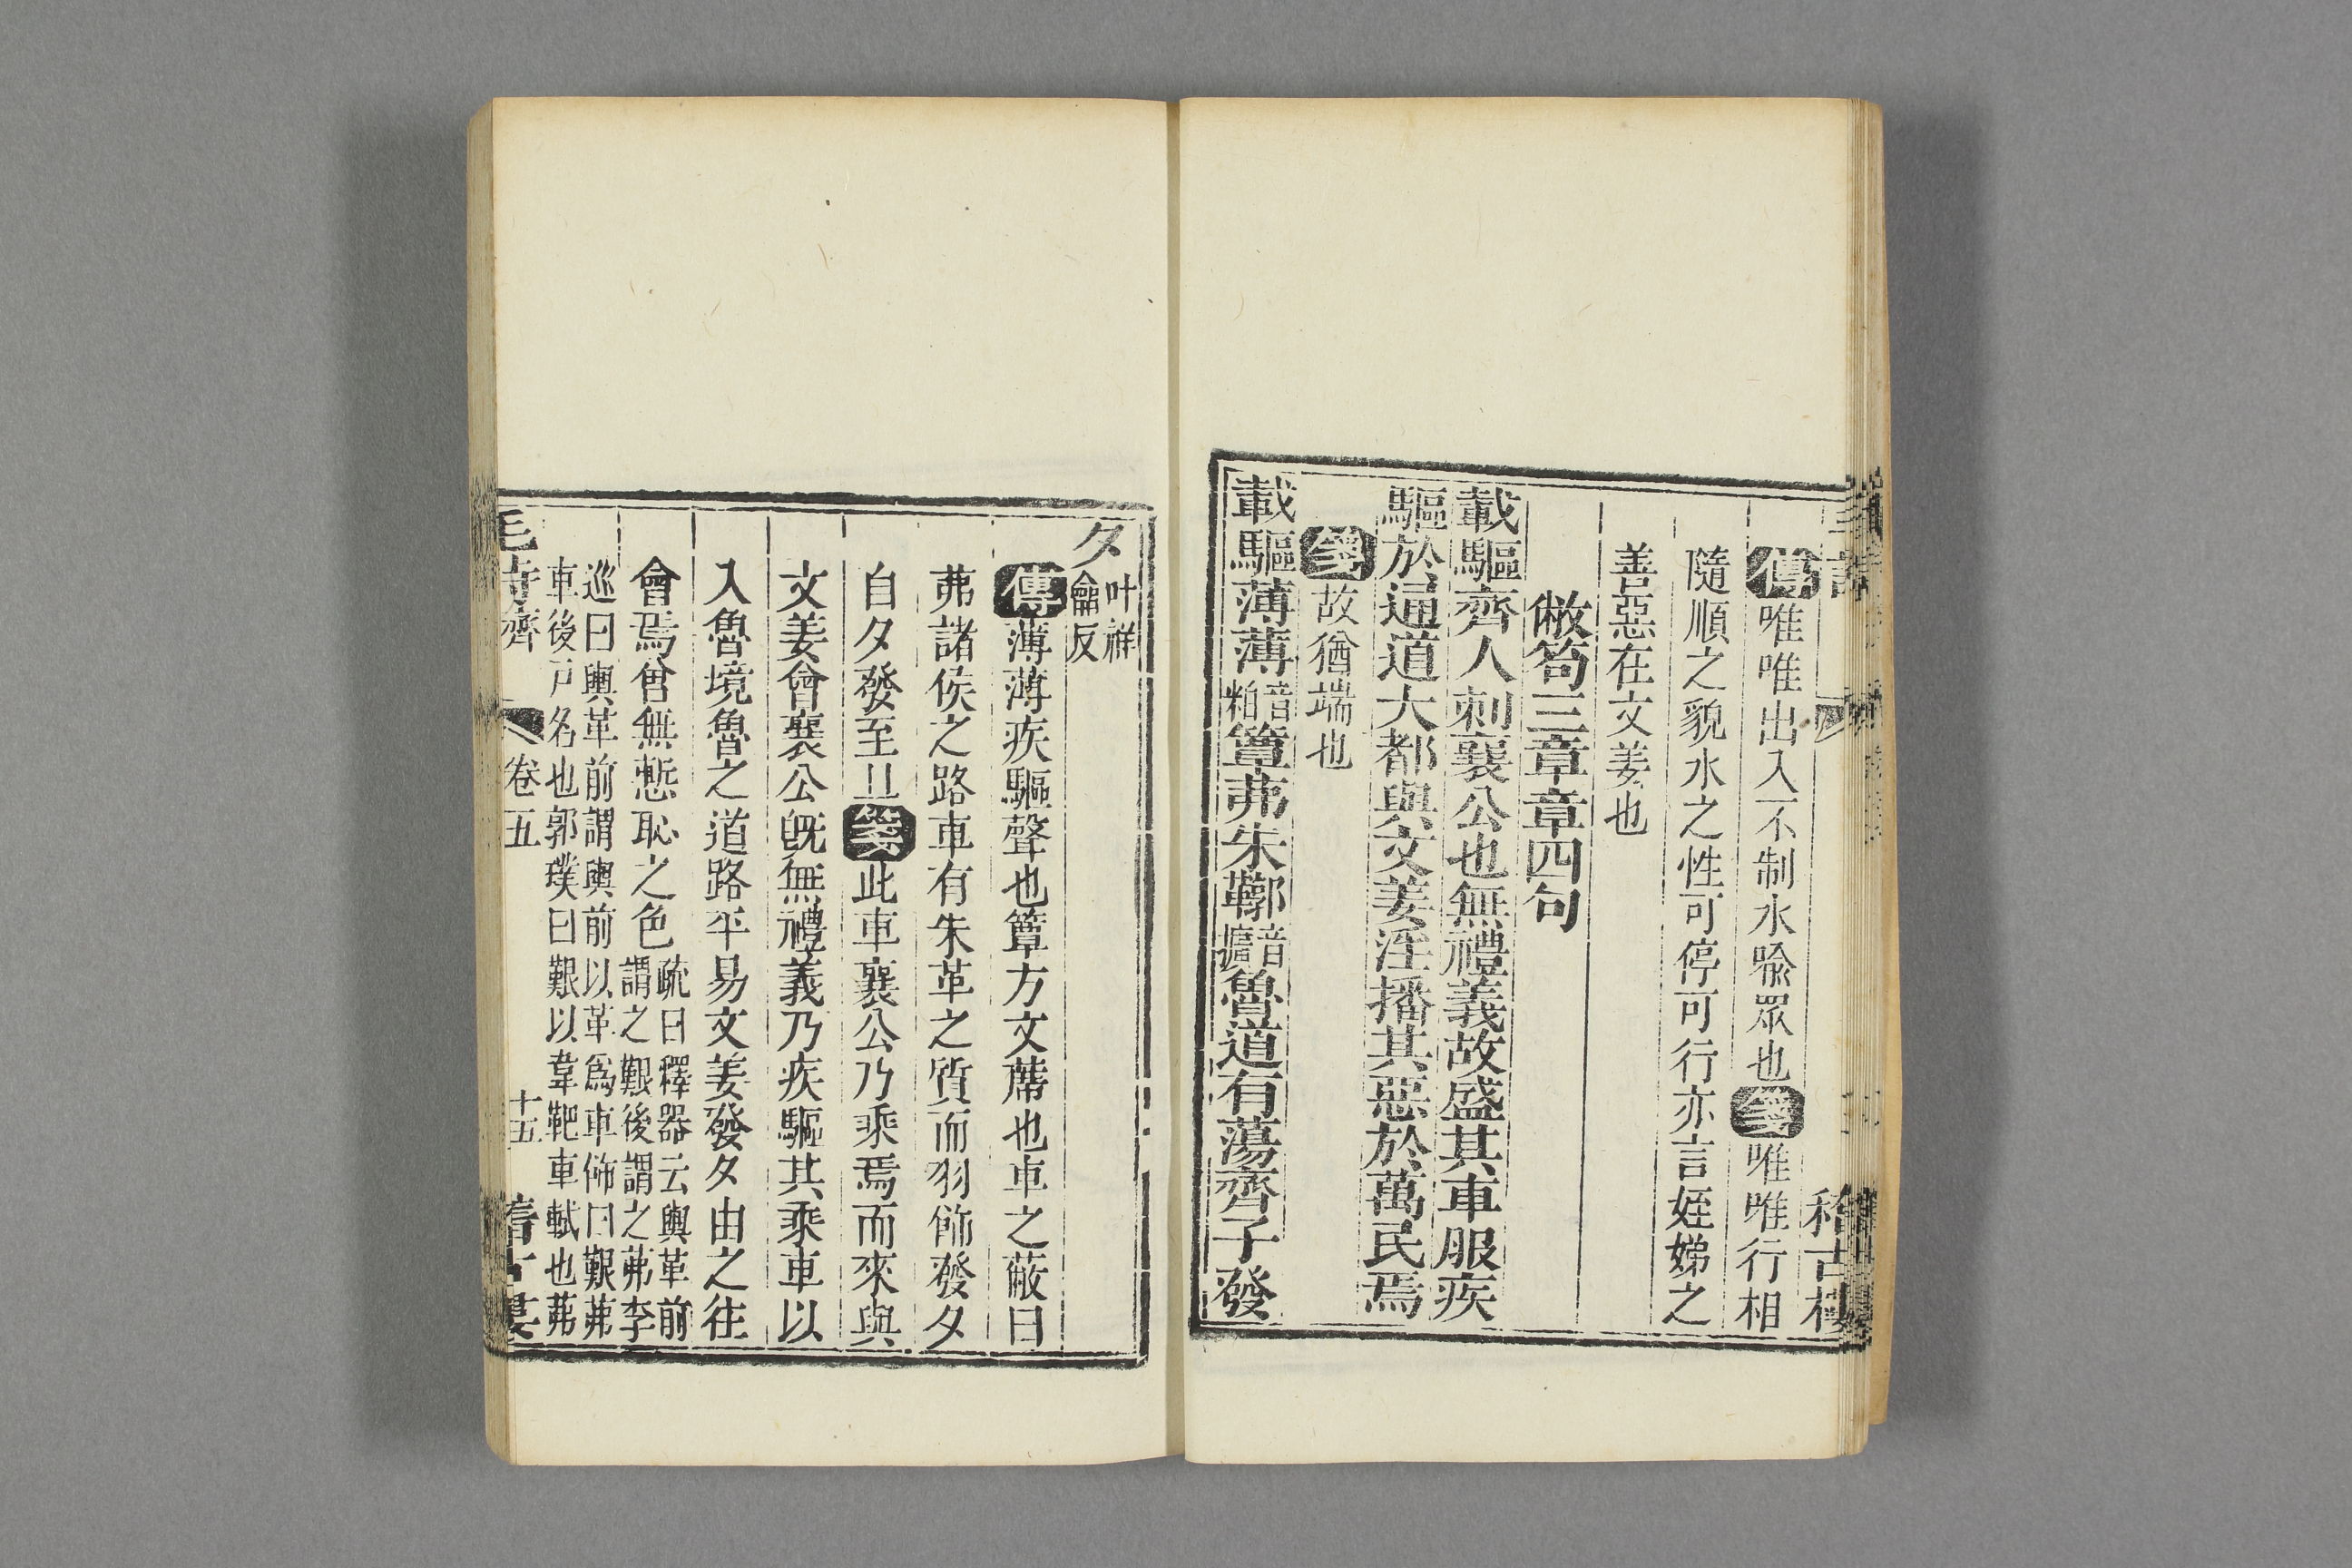 傳唯唯出入不制水喩眾也箋唯唯行相
隨順之貌水之性可停可行亦言姪娣之
善惡在文姜也
敝笱三章章四句
載驅齊人刺襄公也無禮義故盛其車服疾
驅於通道大都與文姜淫播其惡於萬民焉
箋故猶端也
載驅薄薄音粕簟茀朱鞹音擴魯道有蕩齊子發
夕叶祥龠反
傳薄薄疾驅聲也簟方文蓆也車之蔽曰
茀諸侯之路車有朱革之質而羽飾發夕
自夕發至旦箋此車襄公乃乘焉而來與
文姜會襄公旣無禮義乃疾驅其乘車以
入魯境魯之道路平易文姜發夕由之往
會焉曾無慙恥之色疏曰釋器云輿革前謂之艱後謂之茀李
巡曰輿革前謂輿前以革爲車飾曰艱茀
車後戸名也郭璞曰艱以韋靶車軾也茀
毛詩齊 卷五 十五
稽古樓